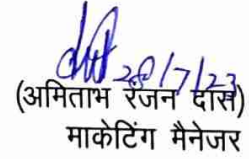 28/7/23
(अमिताभ रंजन दास)
मार्केटिंग मैनेजर